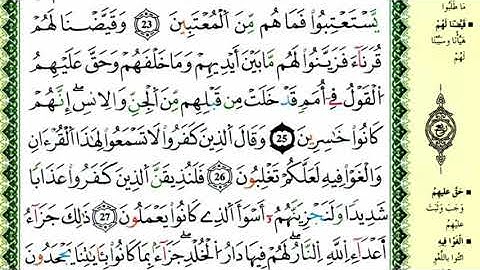 يَسْتَعْتِبُوا فَمَا هُم مِّنَ الْمُعْتَبِينَ 23 وَقَيَّضْنَا لَهُمْ
قُرَنَاءَ فَزَيَّنُوا لَهُم مَّا بَيْنَ أَيْدِيهِمْ وَمَا خَلْفَهُمْ وَحَقَّ عَلَيْهِمُ
الْقَوْلُ فِي أُمَمٍ قَدْ خَلَتْ مِن قَبْلِهِم مِّنَ الْجِنِّ وَالْإِنسِ إِنَّهُمْ
كَانُوا خَاسِرِينَ 25 وَقَالَ الَّذِينَ كَفَرُوا لَا تَسْمَعُوا لِهَٰذَا الْقُرْءَانِ
وَالْغَوْا فِيهِ لَعَلَّكُمْ تَغْلِبُونَ 26 فَلَنُذِيقَنَّ الَّذِينَ كَفَرُوا عَذَابًا
شَدِيدًا وَلَنَجْزِيَنَّهُمْ أَسْوَأَ الَّذِي كَانُوا يَعْمَلُونَ 27 ذَٰلِكَ جَزَاءُ
أَعْدَاءِ اللَّهِ النَّارُ لَهُمْ فِيهَا دَارُ الْخُلْدِ جَزَاءً بِمَا كَانُوا بِآيَاتِنَا يَجْحَدُونَ
مَا طَلَبُوا
قَيَّضْنَا لَهُمْ
هَيَّأْنَا وَسَبَّبْنَا
لَهُمْ
حَقَّ عَلَيْهِمُ
وَجَبَ وَثَبَتَ
عَلَيْهِمُ
الْغَوْا فِيهِ
ائْتُوا بِاللَّغْوِ